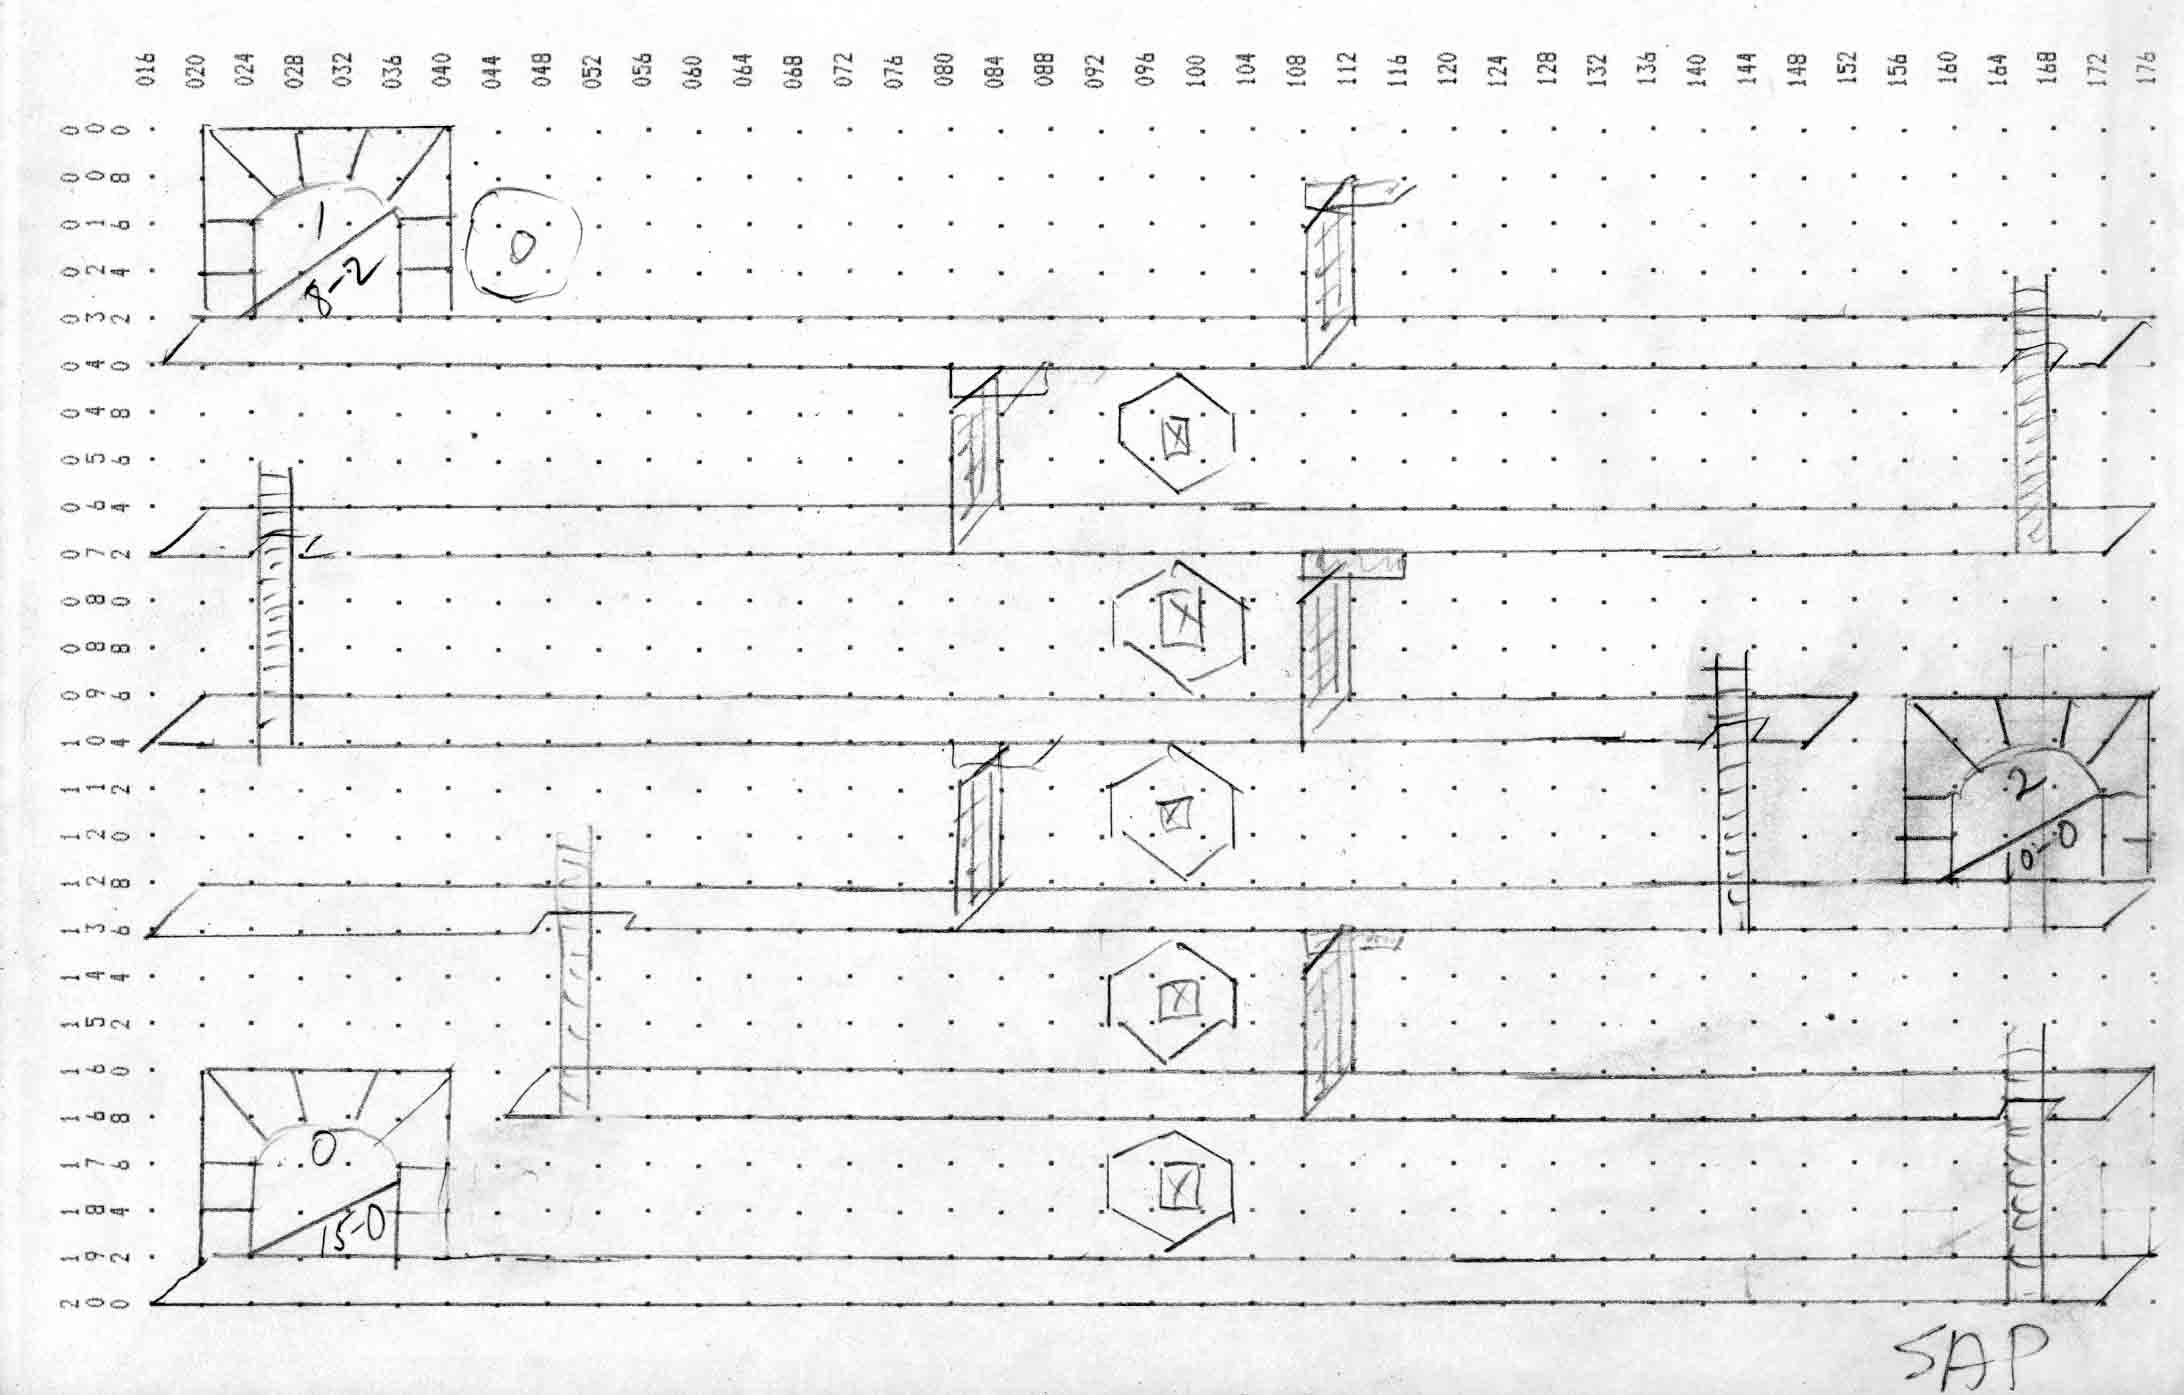 016 020 024 028 032 036 040 044 048 052 056 060 064 068 072 076 080 084 088 092 096 100 104 108 112 116 120 124 128 132 136 140 144 148 152 156 160 164 168 172 176
000
008
016
024
032
040
048
056
064
072
080
088
096
104
112
120
128
136
144
152
160
168
176
184
192
200
1
8-2
0
X
X
2
10-0
X
X
0
15-0
X
SAP